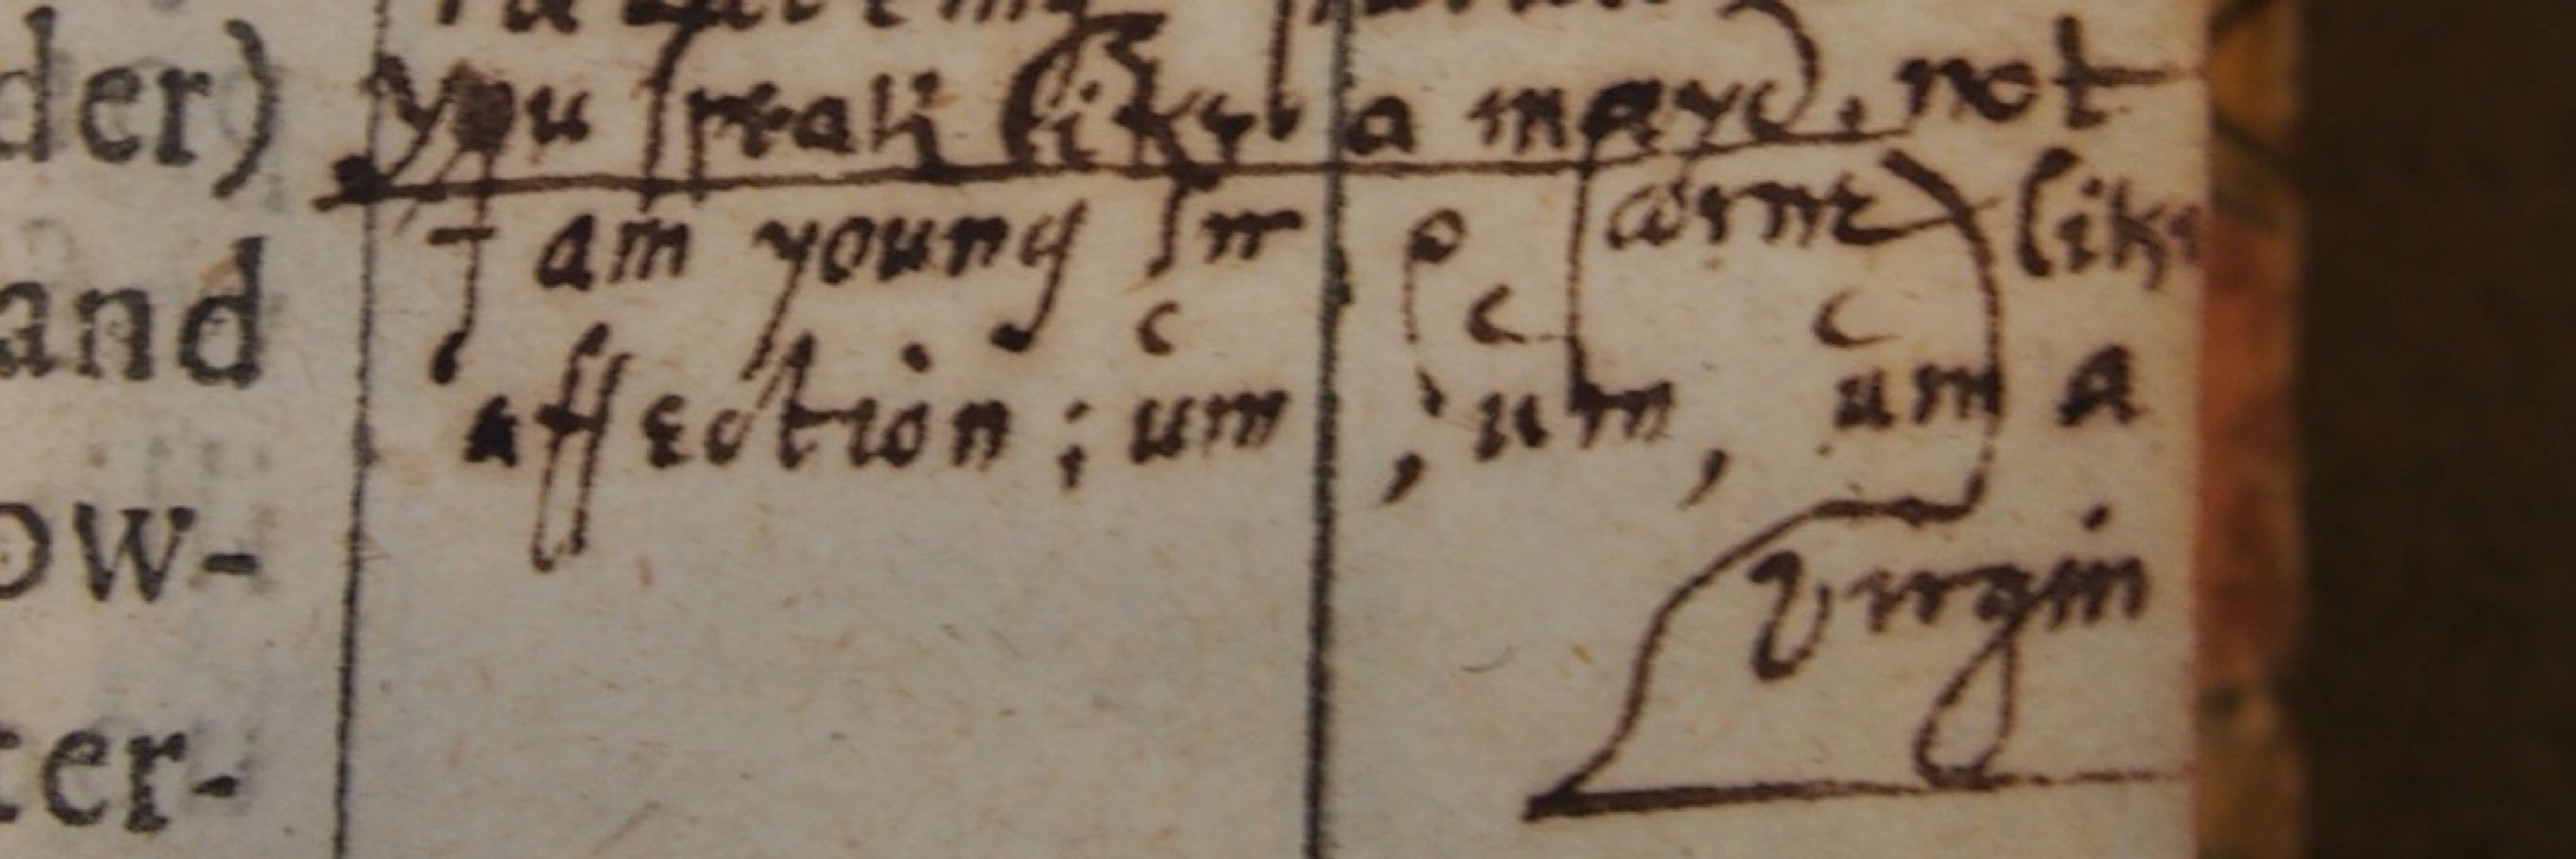 der)
and
ow-
ter-
you speak like a mayd, not
I am young in
like
affection; um, um, um a
Virgin